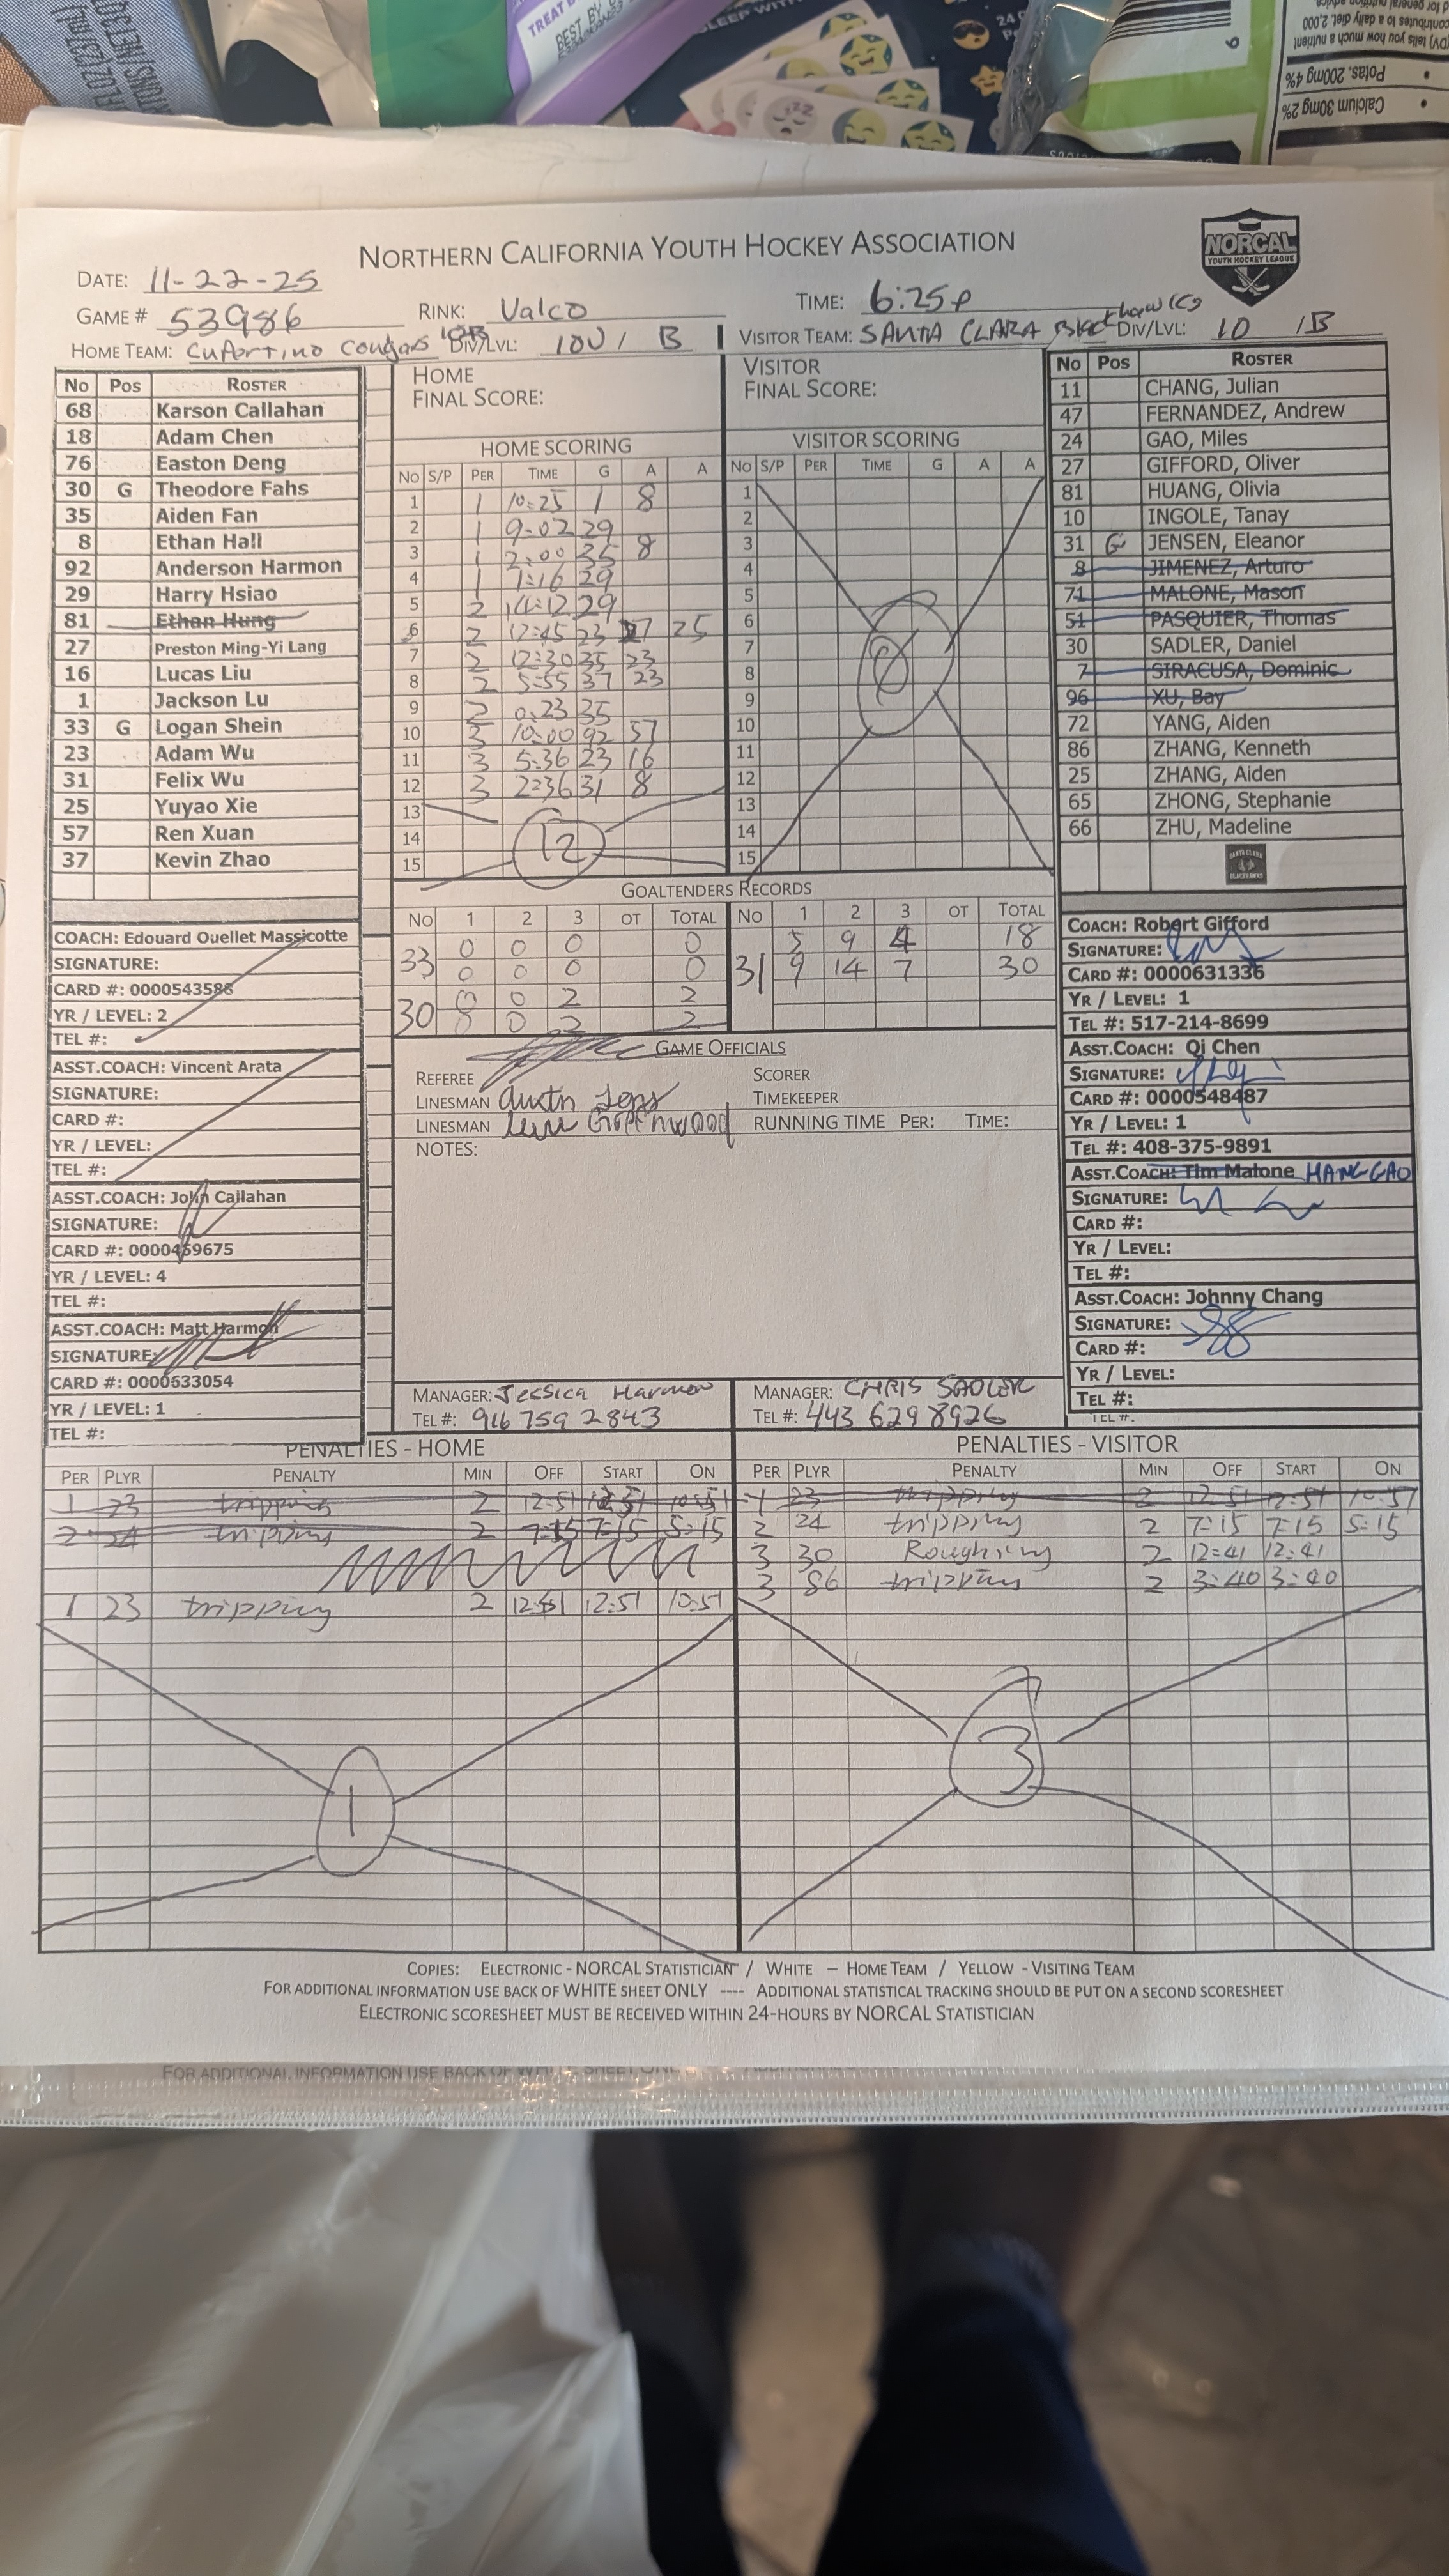 TREAT B
BEST BY
SLEEP WITH
24
Potas. 200mg 4%
Calcium 30mg 2%
NORTHERN CALIFORNIA YOUTH HOCKEY ASSOCIATION
NORCAL
YOUTH HOCKEY LEAGUE
DATE: 11-22-25
GAME # 53986 RINK: Valco TIME: 6:25p
HOME TEAM: Cupertino Cougars 10B DIV/LVL: 10U / B VISITOR TEAM: SANTA CLARA Blackhawk(s) DIV/LVL: 10 / B
No Pos ROSTER
68 Karson Callahan
18 Adam Chen
76 Easton Deng
30 G Theodore Fahs
35 Aiden Fan
8 Ethan Hall
92 Anderson Harmon
29 Harry Hsiao
81 Ethan Hung
27 Preston Ming-Yi Lang
16 Lucas Liu
1 Jackson Lu
33 G Logan Shein
23 Adam Wu
31 Felix Wu
25 Yuyao Xie
57 Ren Xuan
37 Kevin Zhao
COACH: Edouard Ouellet Massicotte
SIGNATURE:
CARD #: 0000543586
YR / LEVEL: 2
TEL #:
ASST.COACH: Vincent Arata
SIGNATURE:
CARD #:
YR / LEVEL:
TEL #:
ASST.COACH: John Callahan
SIGNATURE:
CARD #: 0000459675
YR / LEVEL: 4
TEL #:
ASST.COACH: Matt Harmon
SIGNATURE:
CARD #: 0000633054
YR / LEVEL: 1
TEL #:
HOME
FINAL SCORE:
HOME SCORING
No S/P PER TIME G A A
1 1 10:25 1 8
2 1 9:02 29
3 1 2:00 35 8
4 1 1:16 29
5 2 14:12 29
6 2 12:45 23 27 25
7 2 12:30 35 23
8 2 5:55 37 23
9 2 0:23 35
10 3 10:00 92 57
11 3 5:36 23 16
12 3 2:36 31 8
13
14
15
12
VISITOR
FINAL SCORE:
VISITOR SCORING
No S/P PER TIME G A A
1
2
3
4
5
6
7
8
9
10
11
12
13
14
15
0
GOALTENDERS RECORDS
No 1 2 3 OT TOTAL No 1 2 3 OT TOTAL
33 0 0 0 0
0 0 0 0
30 0 0 2 2
0 0 2 2
31 5 9 4 18
9 14 7 30
GAME OFFICIALS
REFEREE
LINESMAN
LINESMAN
SCORER
TIMEKEEPER
RUNNING TIME PER: TIME:
NOTES:
MANAGER: Jessica Harmon
TEL #: 916 759 2843
MANAGER: CHRIS SADLER
TEL #: 443 629 8926
No Pos ROSTER
11 CHANG, Julian
47 FERNANDEZ, Andrew
24 GAO, Miles
27 GIFFORD, Oliver
81 HUANG, Olivia
10 INGOLE, Tanay
31 G JENSEN, Eleanor
8 JIMENEZ, Arturo
71 MALONE, Mason
51 PASQUIER, Thomas
30 SADLER, Daniel
7 SIRACUSA, Dominic
96 XU, Bay
72 YANG, Aiden
86 ZHANG, Kenneth
25 ZHANG, Aiden
65 ZHONG, Stephanie
66 ZHU, Madeline
COACH: Robert Gifford
SIGNATURE:
CARD #: 0000631336
YR / LEVEL: 1
TEL #: 517-214-8699
ASST.COACH: Qi Chen
SIGNATURE:
CARD #: 0000548487
YR / LEVEL: 1
TEL #: 408-375-9891
ASST.COACH: Tim Malone HANG GAO
SIGNATURE:
CARD #:
YR / LEVEL:
TEL #:
ASST.COACH: Johnny Chang
SIGNATURE:
CARD #:
YR / LEVEL:
TEL #:
TEL #:
PENALTIES - HOME
PER PLYR PENALTY MIN OFF START ON
1 23 tripping 2 12:51 12:51 10:51
2 24 tripping 2 7:15 7:15 5:15
1 23 tripping 2 12:51 12:51 10:51
1
PENALTIES - VISITOR
PER PLYR PENALTY MIN OFF START ON
1 23 tripping 2 12:51 12:51 10:51
2 24 tripping 2 7:15 7:15 5:15
3 30 Roughing 2 12:41 12:41
3 86 tripping 2 3:40 3:40
3
COPIES: ELECTRONIC - NORCAL STATISTICIAN / WHITE – HOME TEAM / YELLOW - VISITING TEAM
FOR ADDITIONAL INFORMATION USE BACK OF WHITE SHEET ONLY ---- ADDITIONAL STATISTICAL TRACKING SHOULD BE PUT ON A SECOND SCORESHEET
ELECTRONIC SCORESHEET MUST BE RECEIVED WITHIN 24-HOURS BY NORCAL STATISTICIAN
FOR ADDITIONAL INFORMATION USE BACK OF WHITE SHEET ONLY